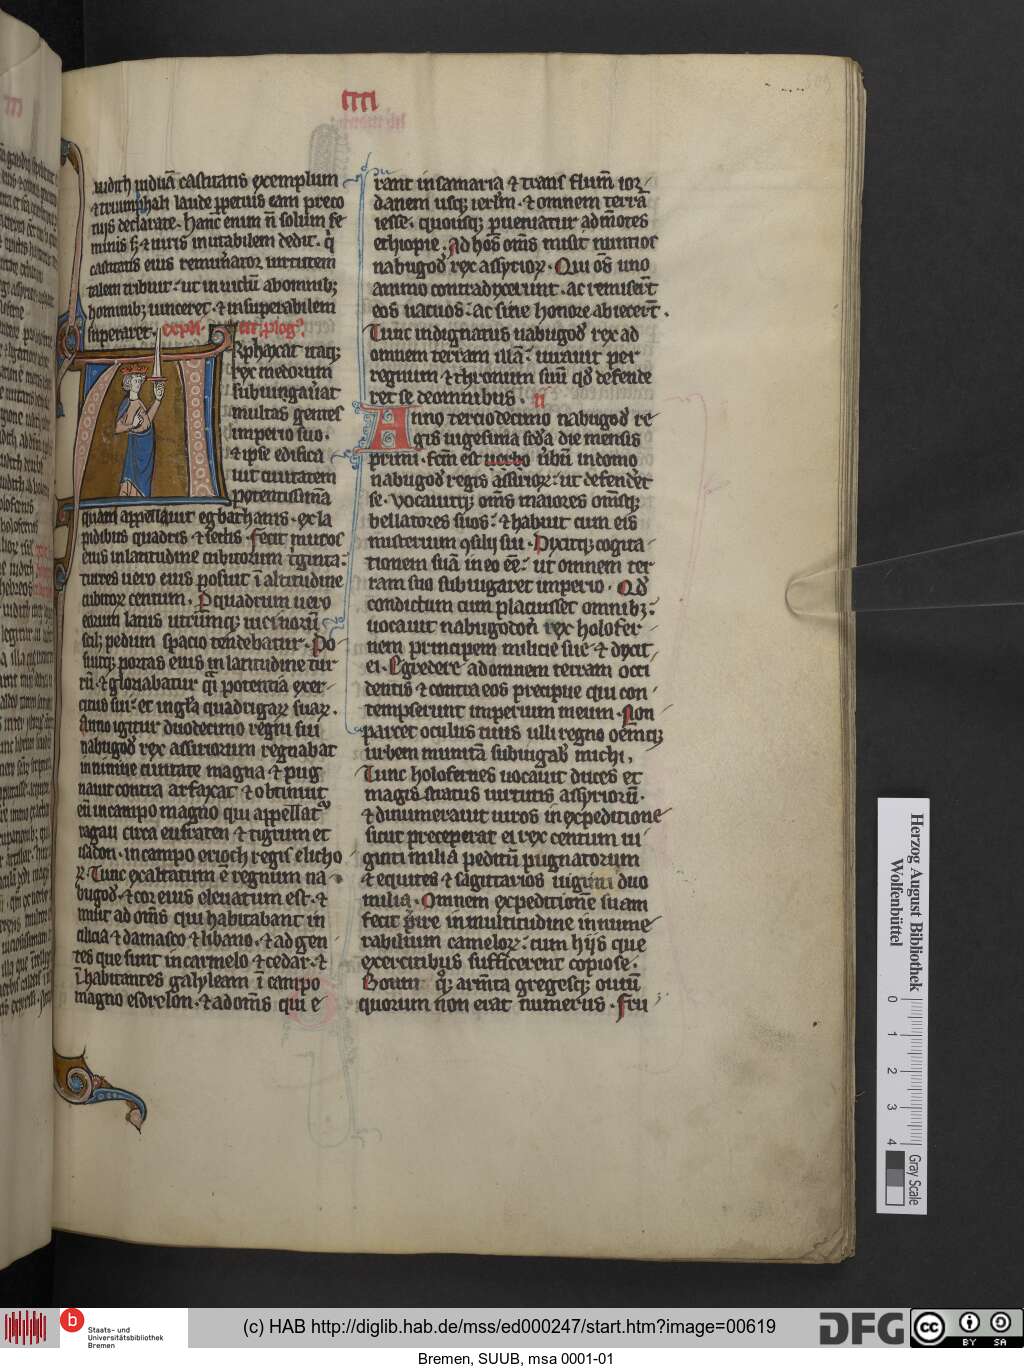 iudith uiduā castitatis exemplum
⁊ triumphali laude ꝑpetuis eam preco
nijs declarate. Hanc̄ enim n̄ solum fe
minis sꝫ ⁊ uiris imitabilem dedit. q̇
castitatis eius remun̄ator uirtutem
talem tribuit. ut inuictū ab omnibꝫ
hominibꝫ uinceret. ⁊ insuperabilem
superaret. expli. plogꝰ.
ARphaxat itaqꝫ
rex medorum
subiungau̓at
multas gentes
imperio suo.
⁊ ipse edifica
uit ciuitatem
potentissimā
quam appellauit egbathanis. ex la
pidibus quadris ⁊ sectis. Fecit muros
eius in latitudine cubitorum t̓ginta.
turres uero eius posuit ī altitudine
cubitoꝝ centum. Ꝑ quadrum uero
eorum latus utrūmqꝫ uicinorū
pedum spacio tendebatur. Po
suitqꝫ portas eius in latitudine tur
riū. ⁊ gloriabatur q̄i potentia exer
citus sui. et in gl̓a quadrigaꝝ suaꝝ.
Anno igitur duodecimo regni sui
nabugod̓ rex assiriorum regnabat
in niniue ciuitate magna ⁊ pug
nauit contra arfaxat ⁊ obtinuit
eū in campo magno qui appellatᷣ
ragau circa eufraten ⁊ tigrim et
iadon. in campo erioch regis elicho
ꝝ. Tunc exaltatum ē regnum na
bugod̓. ⁊ cor eius eleuatum est. ⁊
misit ad om̄s qui habitabant in
cilicia ⁊ damasco ⁊ libano. ⁊ ad gen
tes que sunt in carmelo ⁊ cedar. ⁊
īhabitantes galyleam ī campo
magno esdrelon. ⁊ ad om̄s qui e
rant in samaria ⁊ trans flum̄ ior
danem usqꝫ ierl̓m. ⁊ omnem terrā
iesse. quousqꝫ ꝑueniatur ad m̄otes
ethiopie. Ad hos om̄s misit nuntios
nabugod̓ rex assyrioꝝ. Qui om̄s uno
animo contradixerunt. ac remiser̄t
eos uacuos. ac sine honore abiecer̄t.
Tunc indignatus nabugod̓ rex ad
omnem terram illā. iurauit per
regnum ⁊ thronum suū qd̓ defende
ret se de omnibus. ii
Anno terciodecimo nabugod̓ re
gis uigesima sc̄da die mensis
primi. fc̄m est uerbo u̓bū in domo
nabugod̓ regis assirioꝝ. ut defender̄t
se. vocauitqꝫ om̄s maiores om̄sqꝫ
bellatores suos. ⁊ habuit cum eis
misterium ꝯsilij sui. Dixitqꝫ cogita
tionem suā in eo eē. ut omnem ter
ram suo subiugaret imperio. Qd̓
condictum cum placuisset omnibꝫ.
uocauit nabugodon̓ rex holofer
nem principem milicie sue ⁊ dixit
ei. Egredere ad omnem terram occi
dentis ⁊ contra eos precipue qui con
tempserunt imperium meum. Non
parcet oculus tuus ulli regno oēmqꝫ
urbem munitā subiugab̓ michi.
Tunc holofernes uocauit duces et
magr̄s status uirtutis assyriorū.
⁊ dinumerauit uiros in expeditione
sicut preceperat ei rex centum ui
ginti milia peditū pugnatorum
⁊ equites ⁊ sagittarios uiginti duo
milia. Omnem expeditione suam
fecit p̓ire in multitudine innume
rabilium cameloꝝ. cum hijs que
exercitibus sufficerent copiose.
Boum qꝫ arm̄ta gregesqꝫ ouiū
quorum non erat numerus. Fru
Herzog August Bibliothek
Wolfenbüttel
0 1 2 3 4
Gray Scale
b Staats- und
Universitätsbibliothek
Bremen
(c) HAB http://diglib.hab.de/mss/ed000247/start.htm?image=00619
DFG
cc BY SA
Bremen, SUUB, msa 0001-01